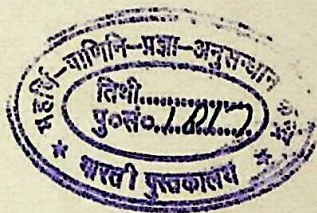 महर्षि-पाणिनि-प्रज्ञा-अनुसन्धान केन्द्र
तिथी..............
पु०सं०.1817
* भारती पुस्तकालय *